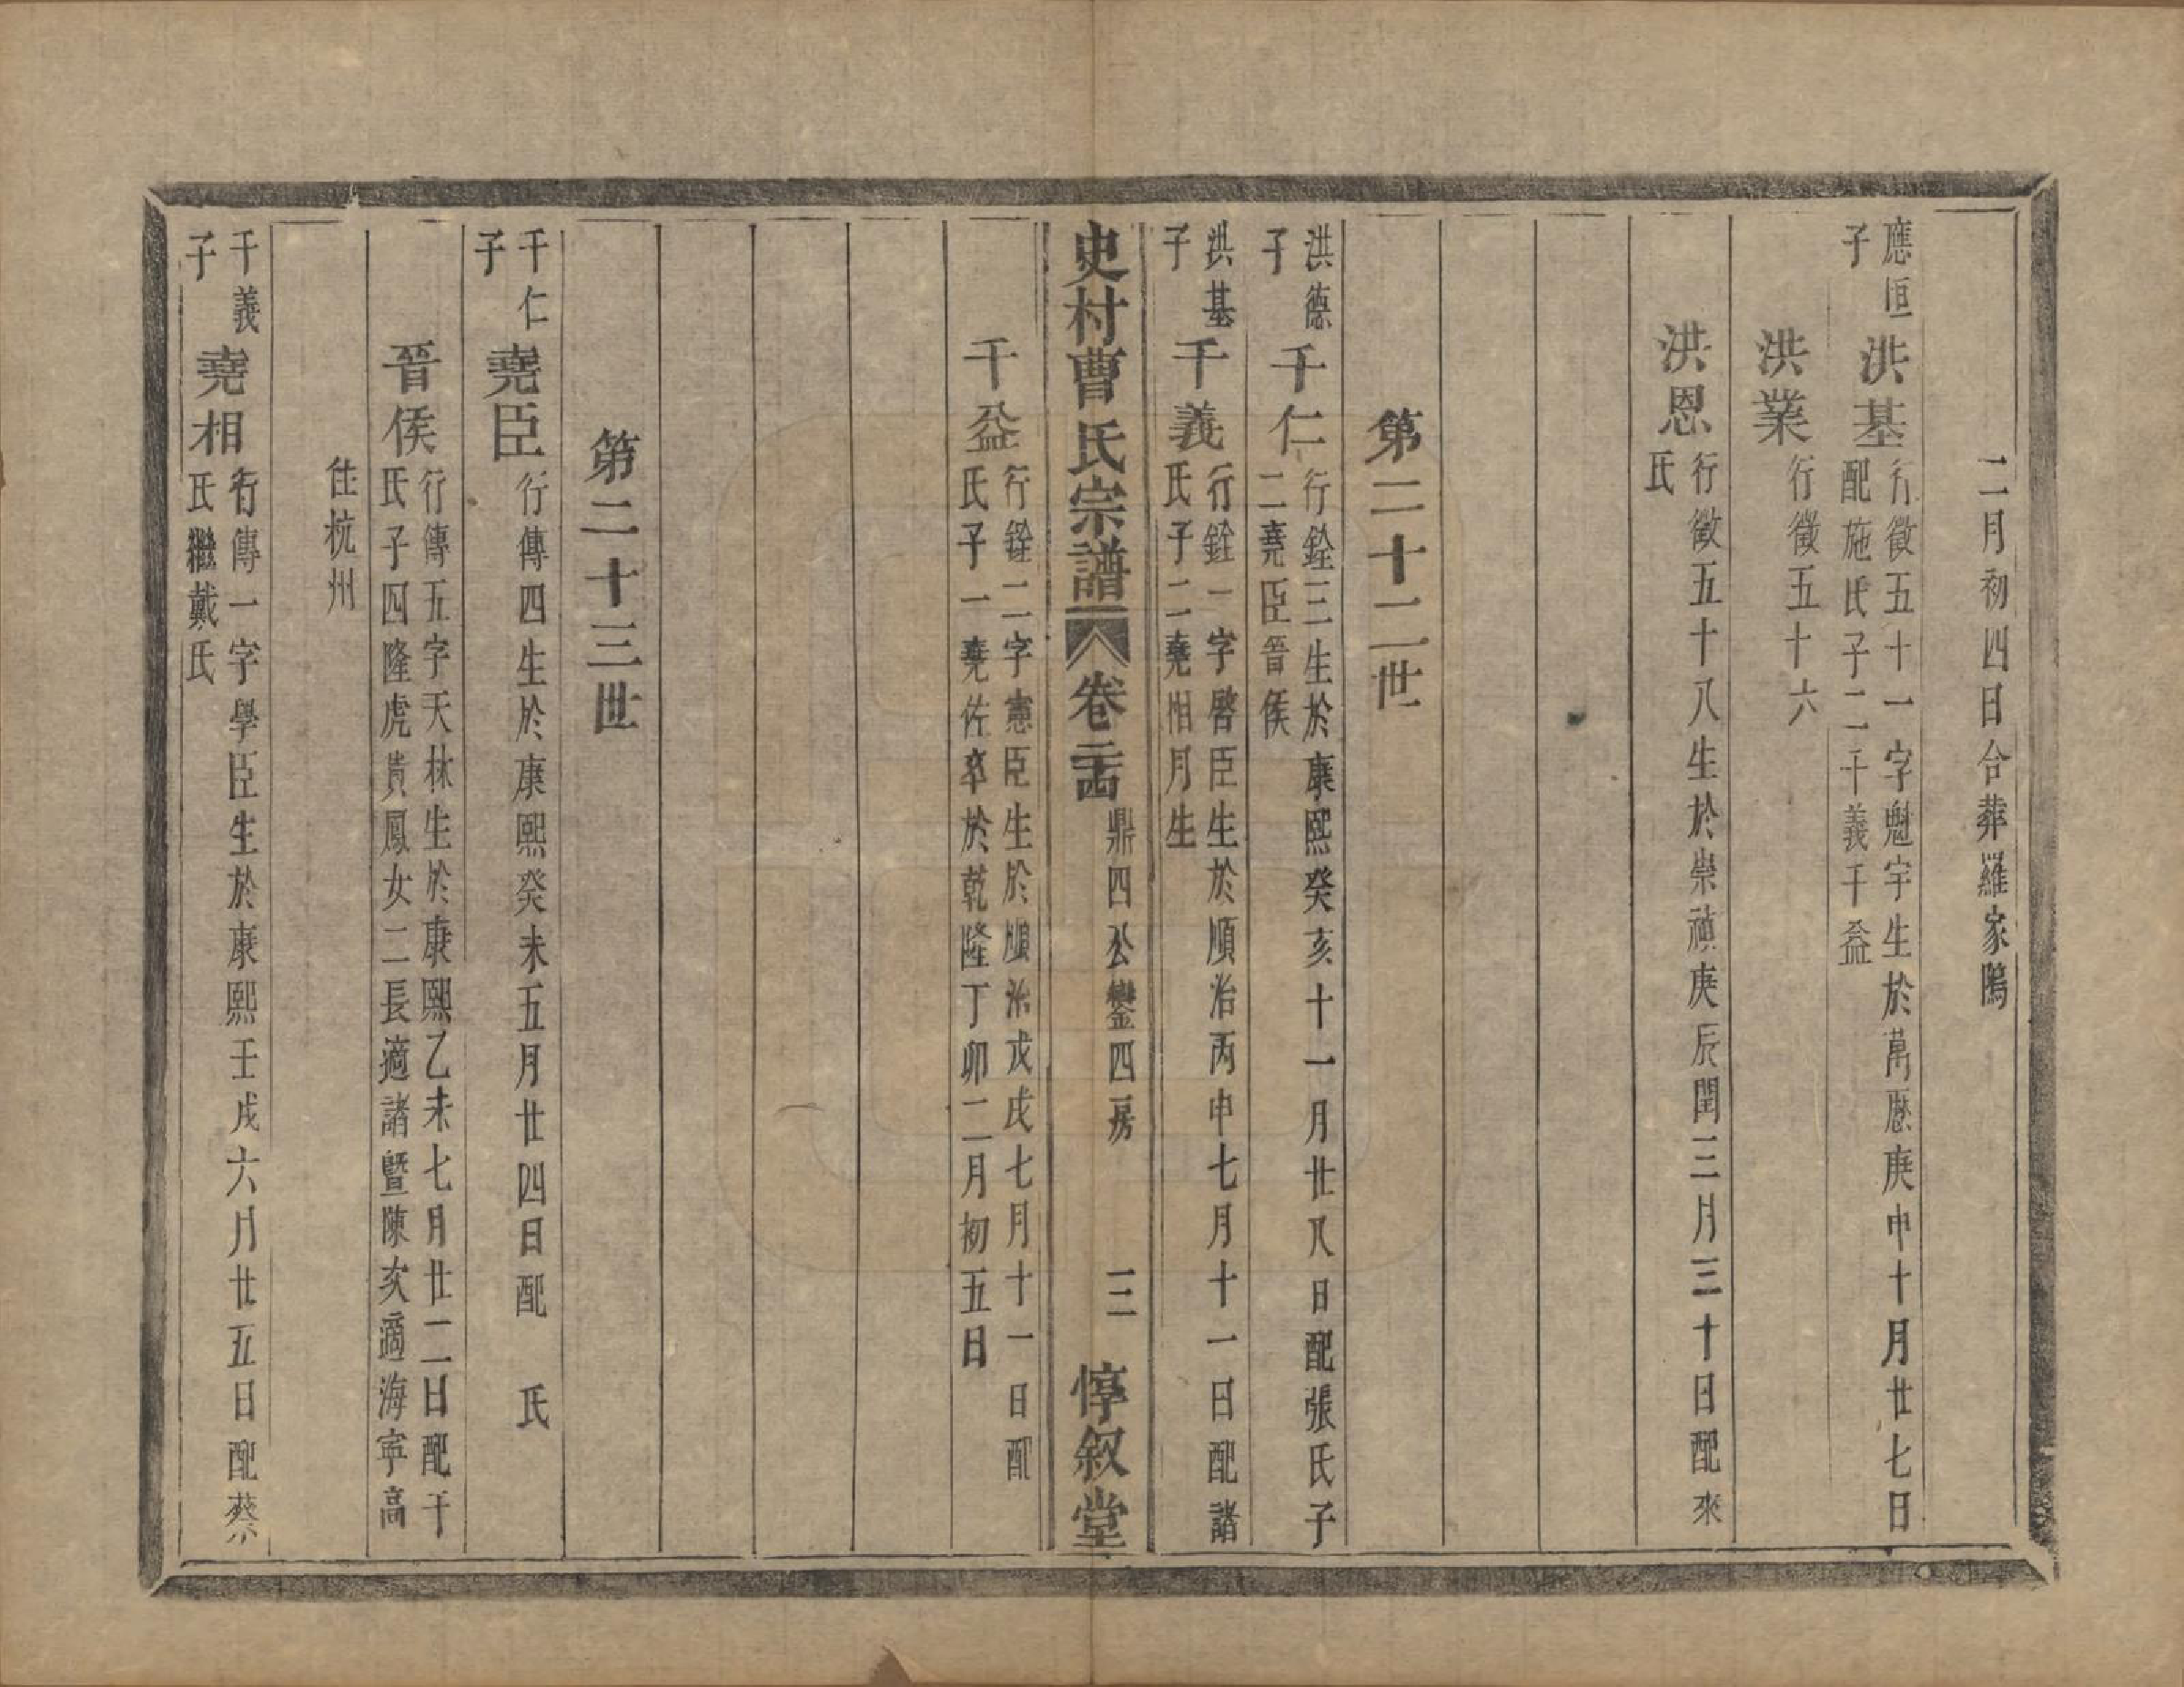 二月初四日合葬羅家隖
應恒子
洪基
行徵五十一字魁宇生於萬厯庚申十月廿七日
配施氏子二千義千益
洪業
行徵五十六
洪恩
行徵五十八生於崇禎庚辰閏三月三十日配來
氏
第二十二世
洪德子
千仁
行銓三生於康熙癸亥十一月廿八日配張氏子
二堯臣晉侯
洪基子
千義
行銓一字啓臣生於順治丙申七月十一日配諸
氏子二堯相月生
史村曹氏宗譜
卷二十四
鼎四公鑾四房
三
惇敘堂
千益
行銓二字憲臣生於順治戊戌七月十一日配
氏子一堯佐卒於乾隆丁卯二月初五日
第二十三世
千仁子
堯臣
行傳四生於康熙癸未五月廿四日配　氏
晉侯
行傳五字天林生於康熙乙未七月廿二日配干
氏子四隆虎貴鳳女二長適諸暨陳次適海寧高
住杭州
千義子
堯相
行傳一字學臣生於康熙壬戌六月廿五日配蔡
氏繼戴氏